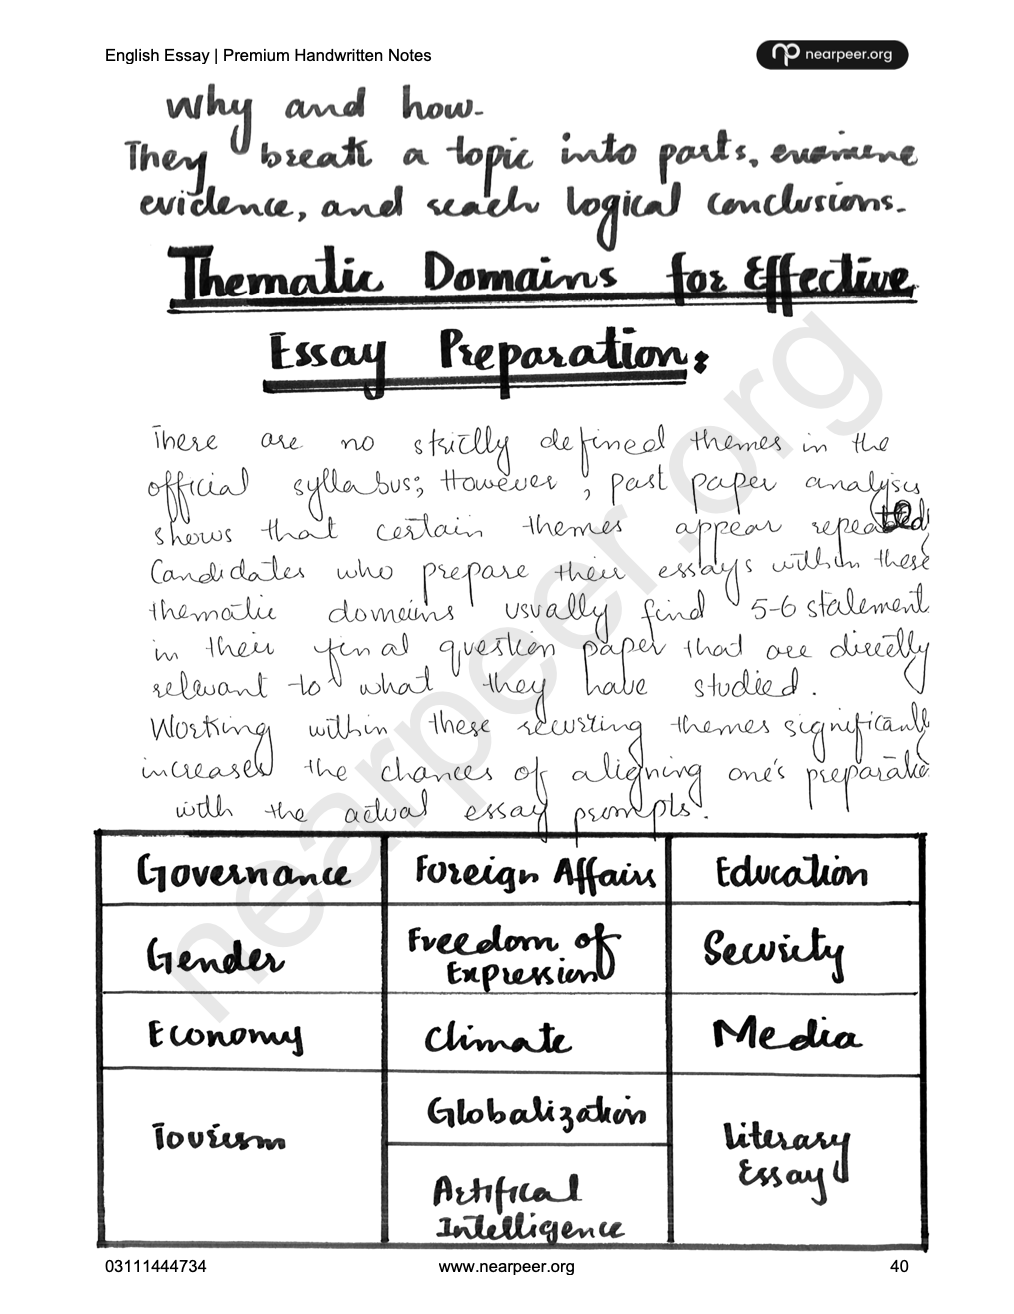 English Essay | Premium Handwritten Notes
nearpeer.org
Why and how.
They break a topic into parts, examine
evidence, and reach logical conclusions.
Thematic Domains for Effective
Essay Preparation:
There are no strictly defined themes in the
official syllabus; However, past paper analysis
shows that certain themes appear repeated
Candidates who prepare their essays within these
thematic domains usually find 5-6 statement
in their final question paper that are directly
relevant to what they have studied.
Working within these recurring themes significantly
increases the chances of aligning one's preparatio
with the actual essay prompts.
Governance Foreign Affairs Education
Gender Freedom of Expression Security
Economy Climate Media
Tourism Globalization Literary Essay
Artifical Intelligence
nearpeer.org
03111444734 www.nearpeer.org 40